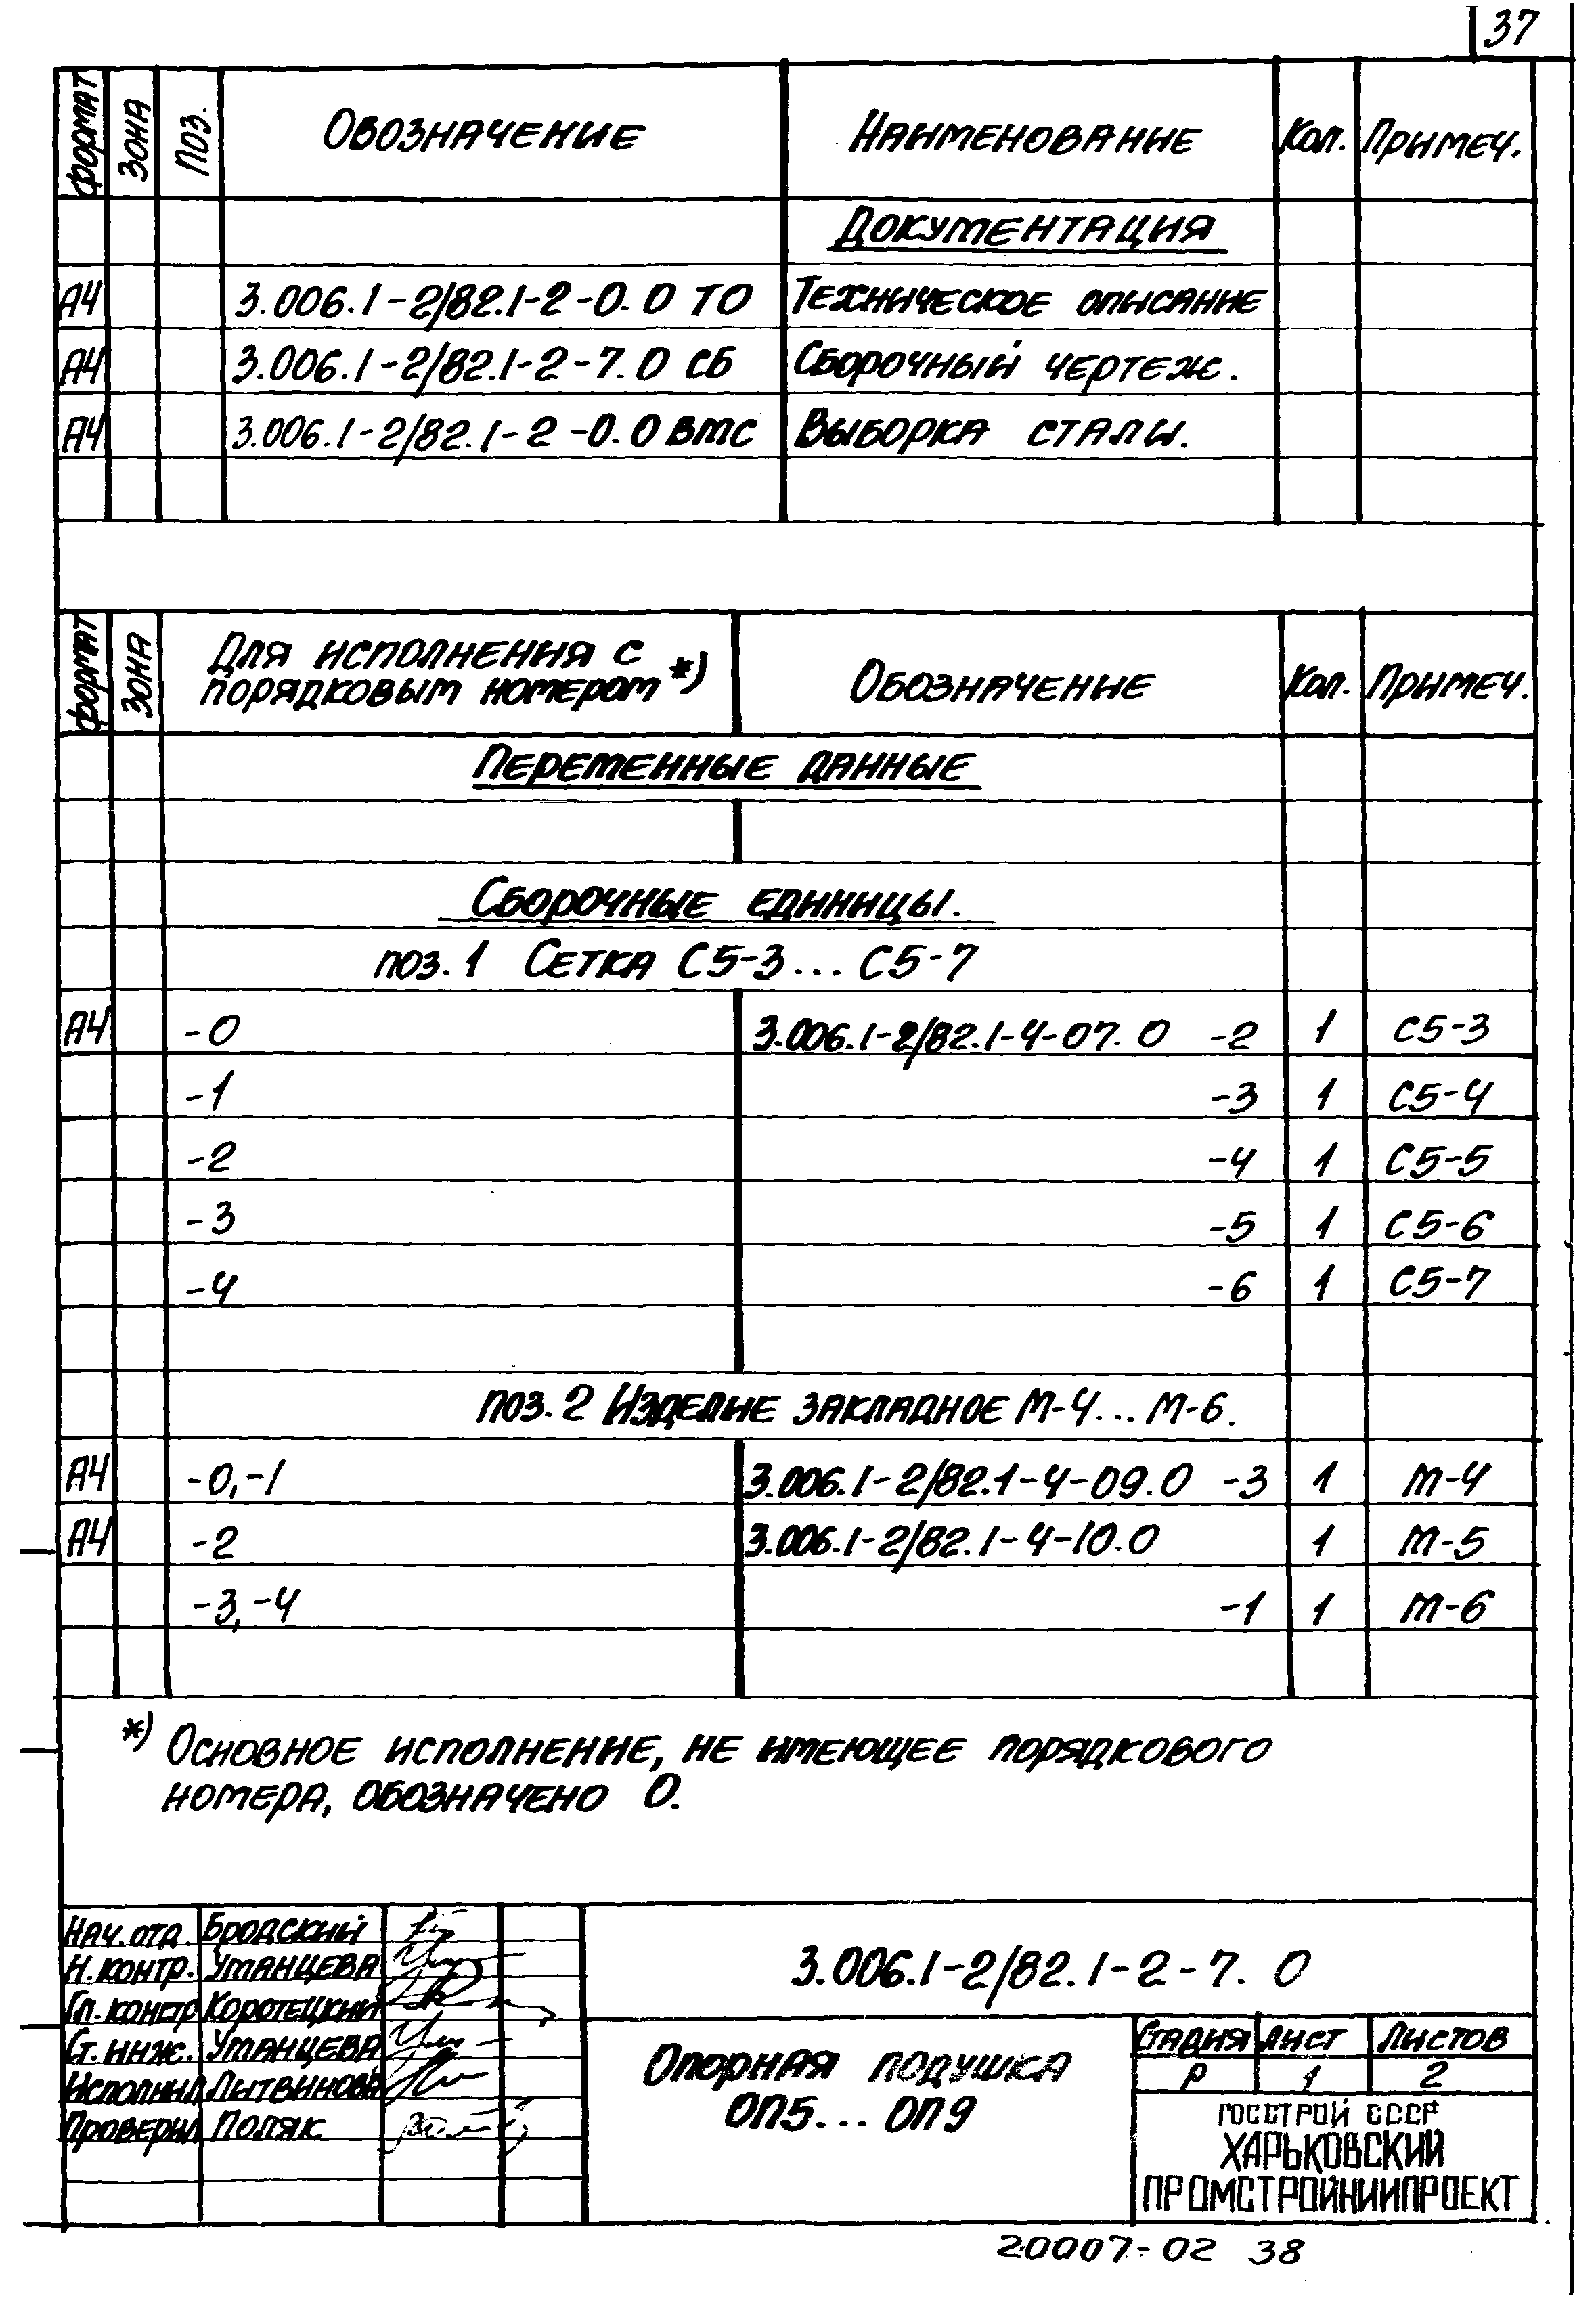 37
Формат Зона Поз. Обозначение Наименование Кол. Примеч.
Документация
А4 3.006.1-2/82.1-2-0.0 ТО Техническое описание
А4 3.006.1-2/82.1-2-7.0 СБ Сборочный чертеж.
А4 3.006.1-2/82.1-2-0.0 ВМС Выборка стали.
Формат Зона Для исполнения с порядковым номером *) Обозначение Кол. Примеч.
Переменные данные
Сборочные единицы.
поз. 1 Сетка С5-3...С5-7
А4 -0 3.006.1-2/82.1-4-07.0 -2 1 С5-3
-1 -3 1 С5-4
-2 -4 1 С5-5
-3 -5 1 С5-6
-4 -6 1 С5-7
поз. 2 Изделие закладное М-4...М-6.
А4 -0,-1 3.006.1-2/82.1-4-09.0 -3 1 М-4
А4 -2 3.006.1-2/82.1-4-10.0 1 М-5
-3,-4 -1 1 М-6
*) Основное исполнение, не имеющее порядкового
номера, обозначено 0.
Нач. отд. Бродский
Н. контр. Уманцева
Гл. констр. Коротецкий
Ст. инж. Уманцева
Исполнил Литвинова
Проверил Поляк
3.006.1-2/82.1-2-7.0
Опорная подушка
ОП5...ОП9
Стадия Лист Листов
Р 1 2
ГОССТРОЙ СССР
ХАРЬКОВСКИЙ
ПРОМСТРОЙНИИПРОЕКТ
20007-02 38